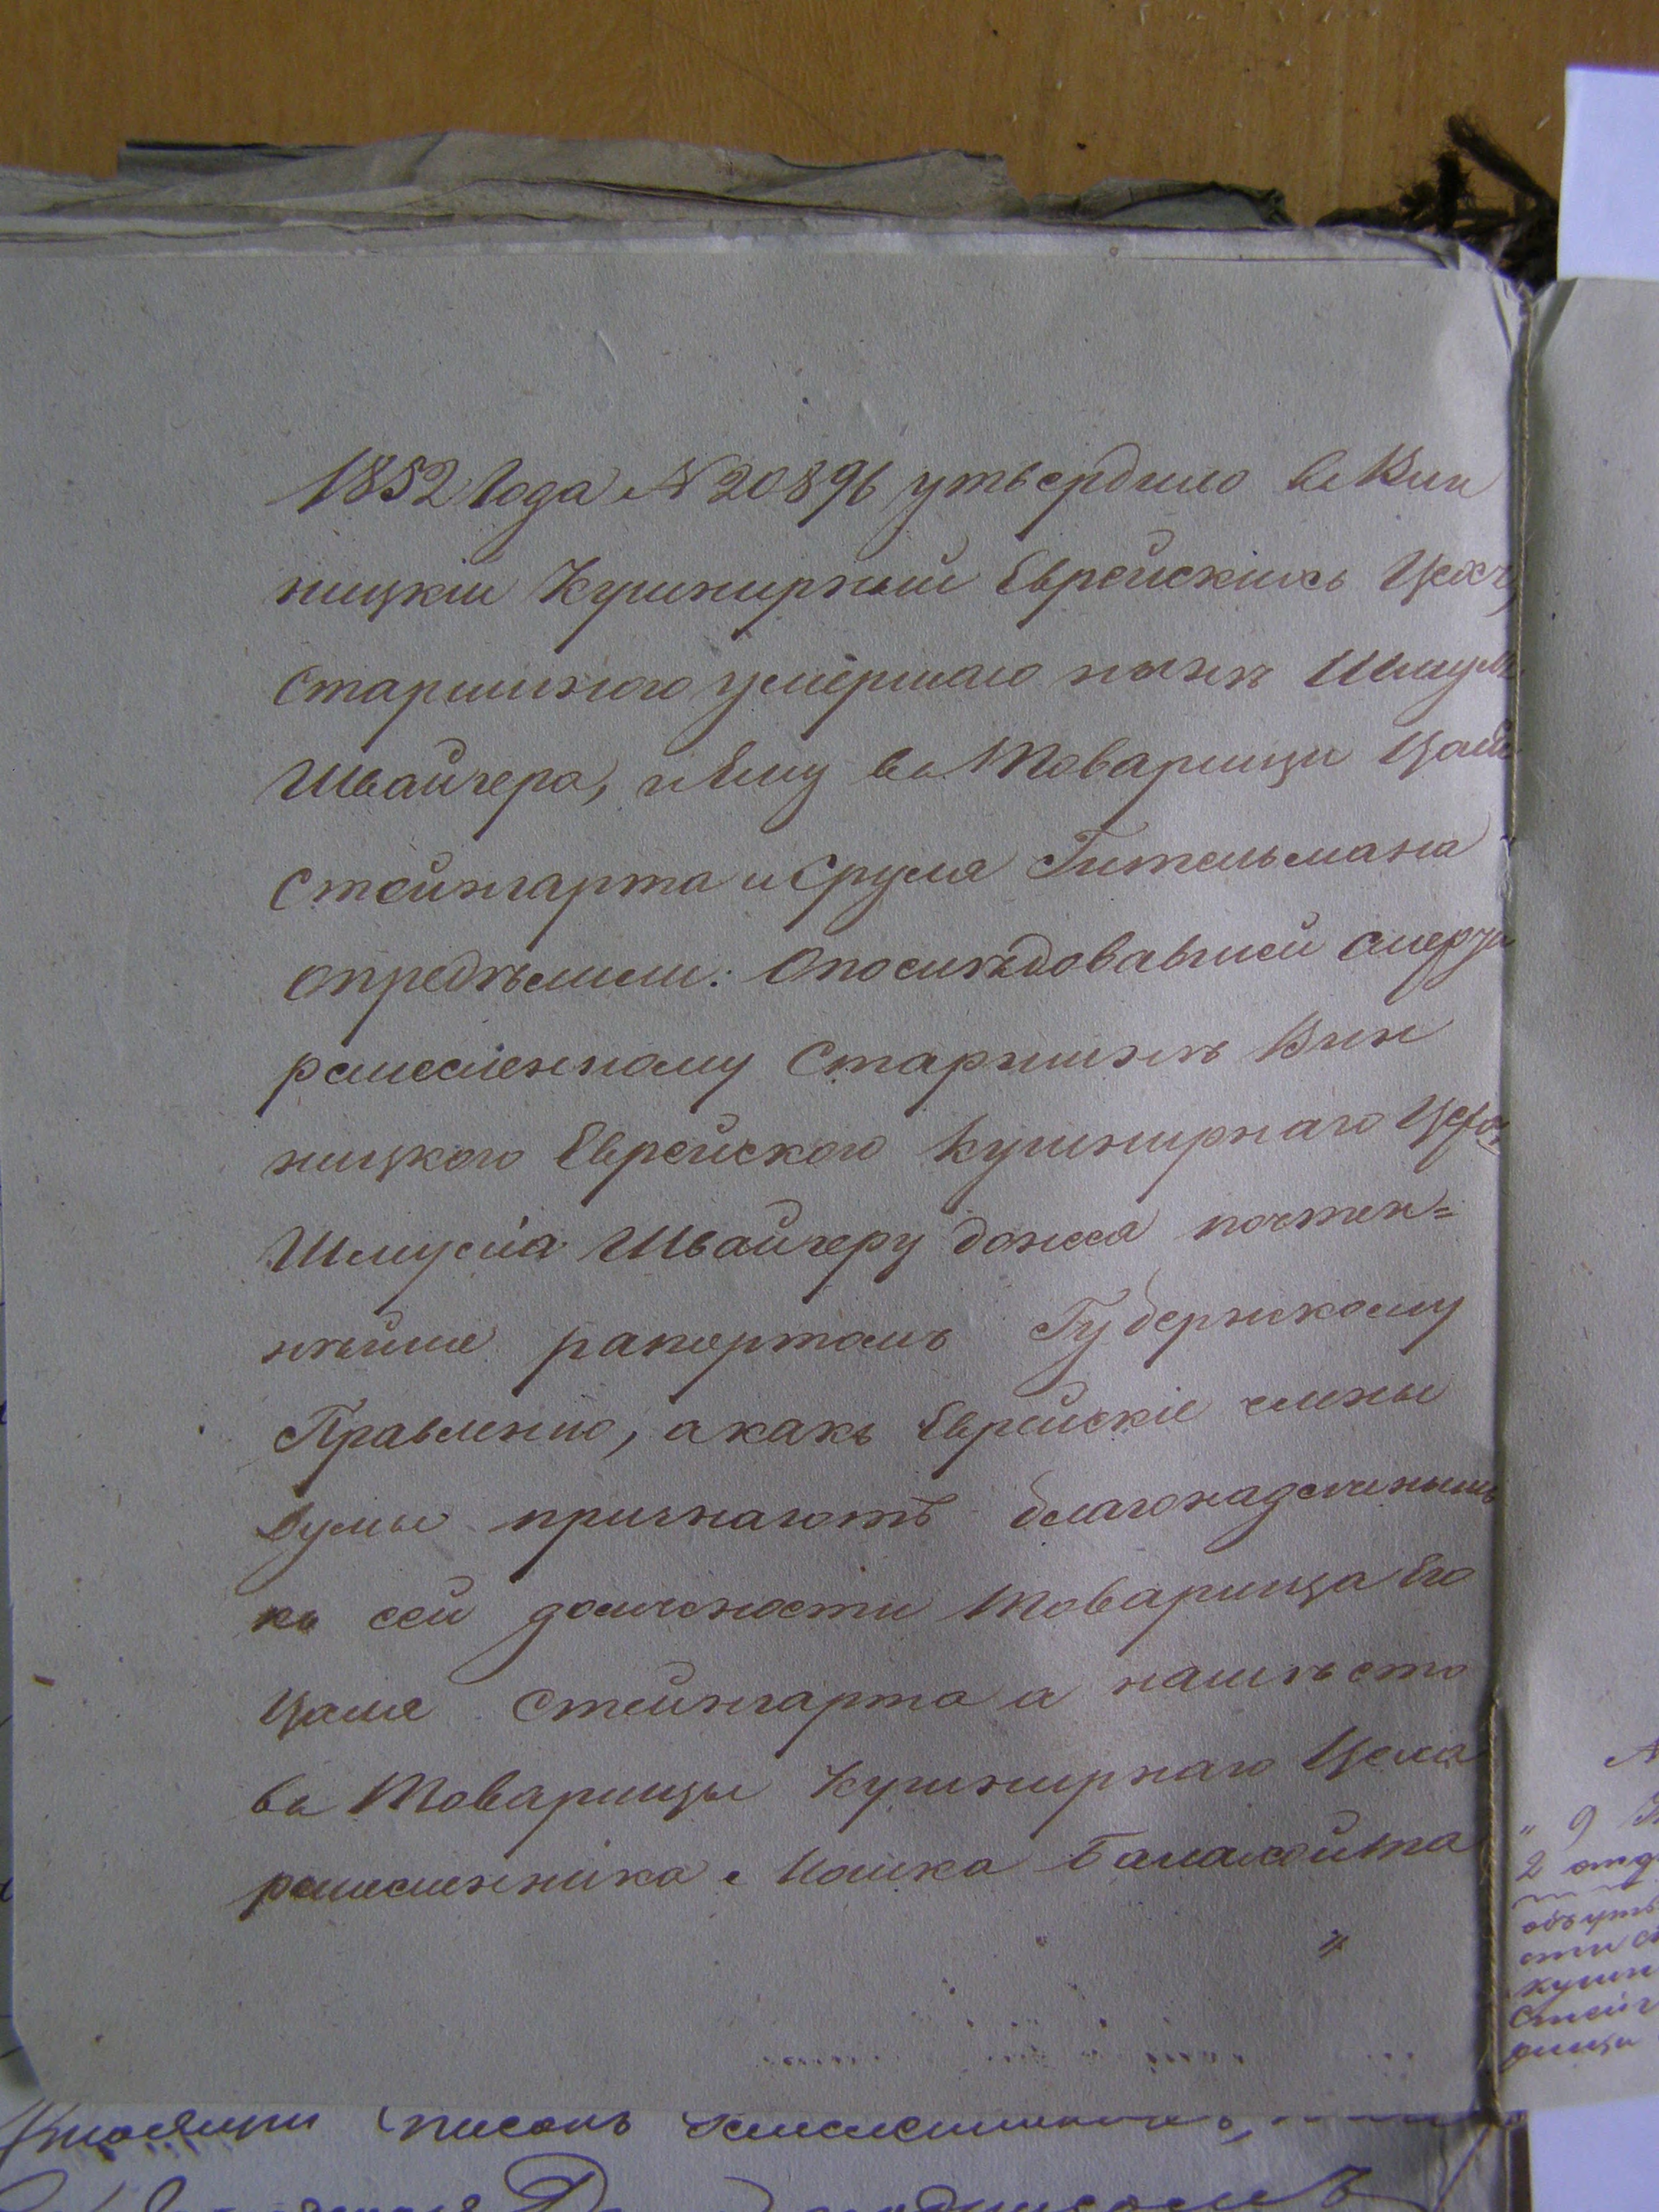 1852 Года № 20896 утвердило въ Вин
ницкій Кушнирный Еврейскихъ Цехъ,
Старшиного умершаго нынѣ Шмуля
Швайгера, и Ему въ Товарищи Цаля
Стейнгарта и Сруля Гительмана
опредѣлили: О послѣдовавшей смерти
ремесленному Старшинѣ Вин
ницкого Еврейского Кушнирнаго Цеха
Шмуля Швайгеру донеся почтен=
нѣйше рапортомъ Губернскому
Правленію, а какъ Еврейскіе члены
Думы признаютъ благонадежнымъ
къ сей должности Товарища Его
Цаля Стейнгарта а намѣсто
въ Товарищы Кушнирнаго Цеха
ремесленника Іошка
" 9
2 отд